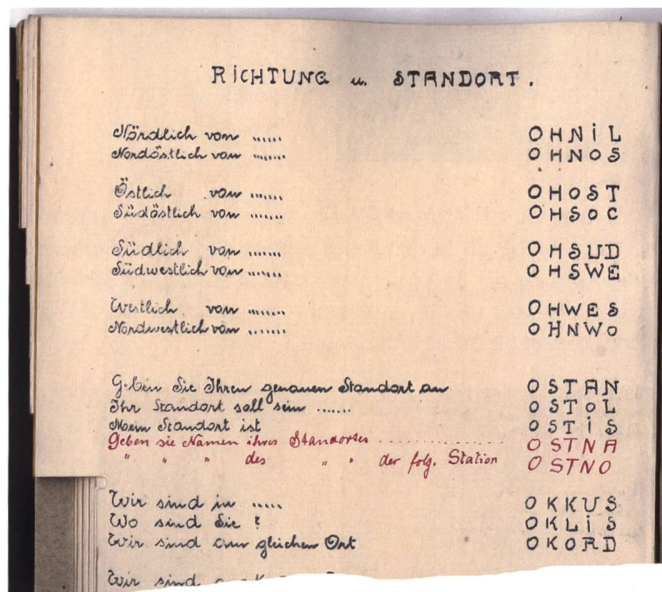 RiCHTUNG u. STANDORT.
Nördlich von ...... OHNiL
Nordöstlich von ....... OHNOS
Östlich von ...... OHOST
Südöstlich von ...... OHSOC
Südlich von ...... OHSUD
Südwestlich von ...... OHSWE
Westlich von ...... OHWES
Nordwestlich von ...... OHNWO
Geben Sie Ihren genauen Standort an OSTAN
Ihr Standort soll sein ...... OSTOL
Mein Standort ist OSTiS
Geben sie Namen ihres Standortes ............. OSTNA
" " " des " " der folg. Station OSTNO
Wir sind in ..... OKKUS
Wo sind Sie ? OKLiS
Wir sind am gleichen Ort OKORD
Wir sind